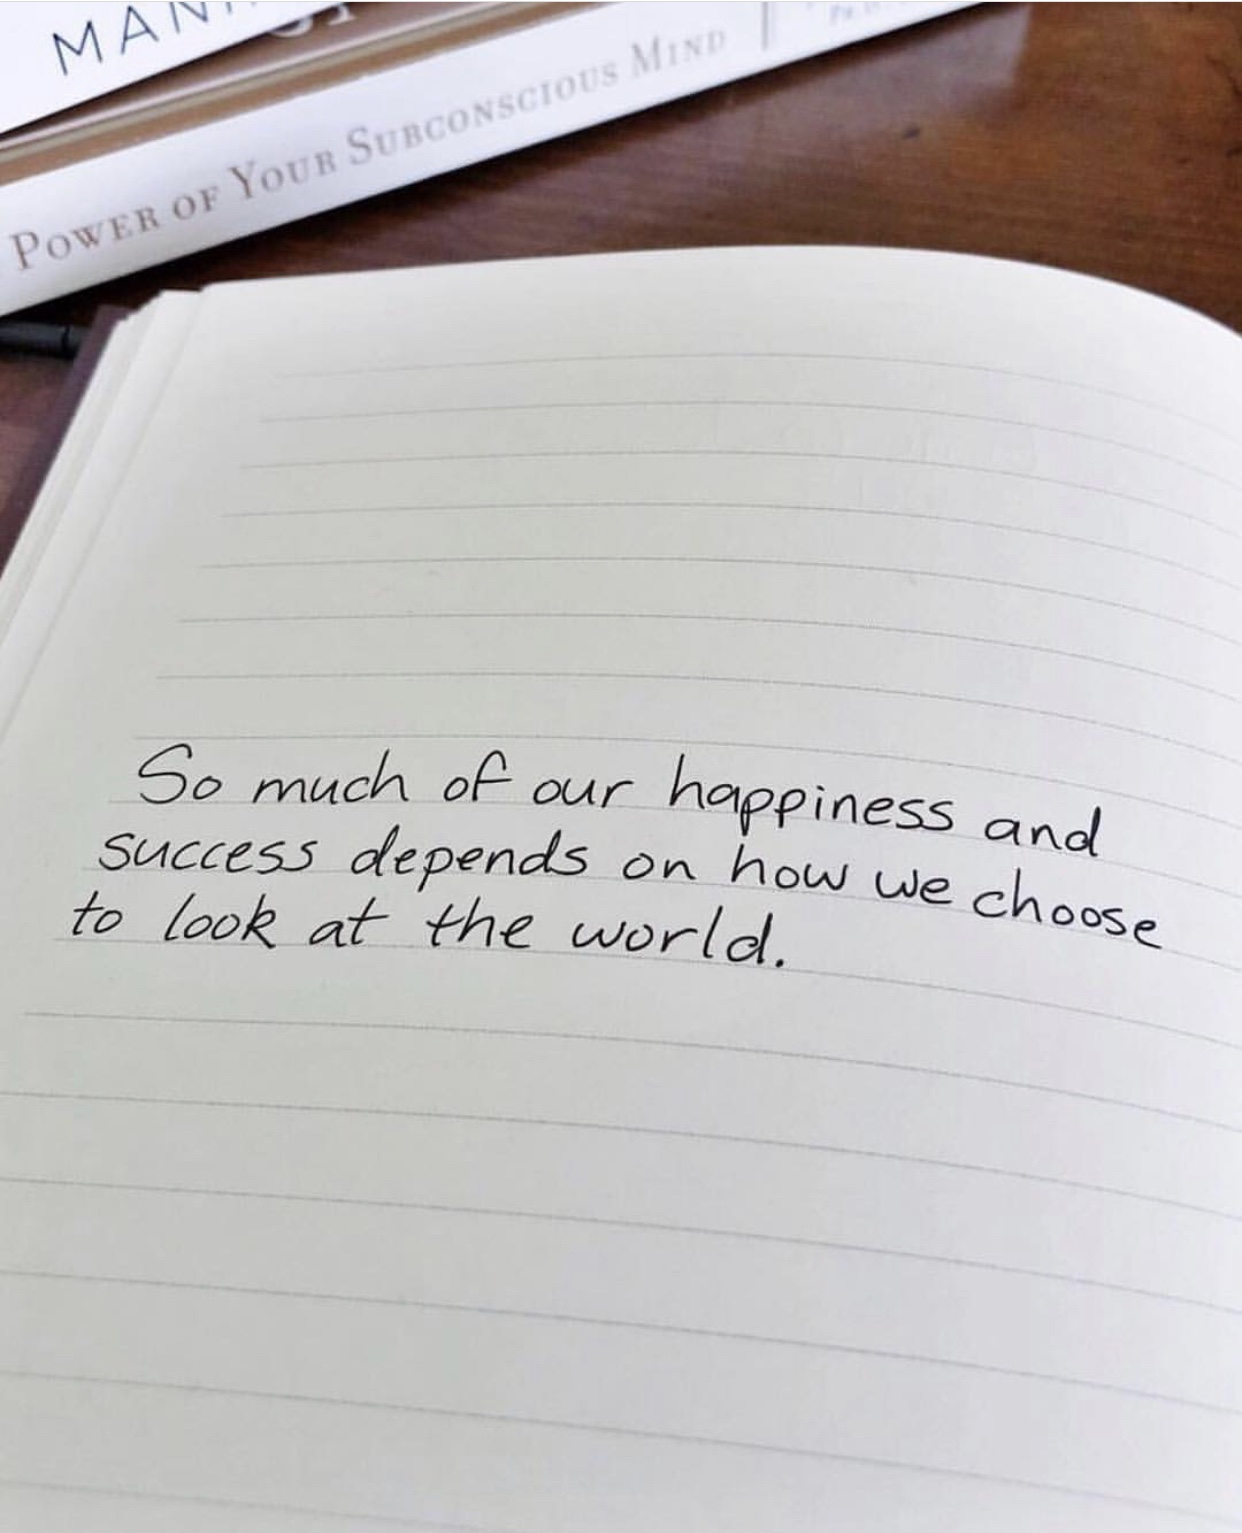 POWER OF YOUR SUBCONSCIOUS MIND
So much of our happiness and
success depends on how we choose
to look at the world.